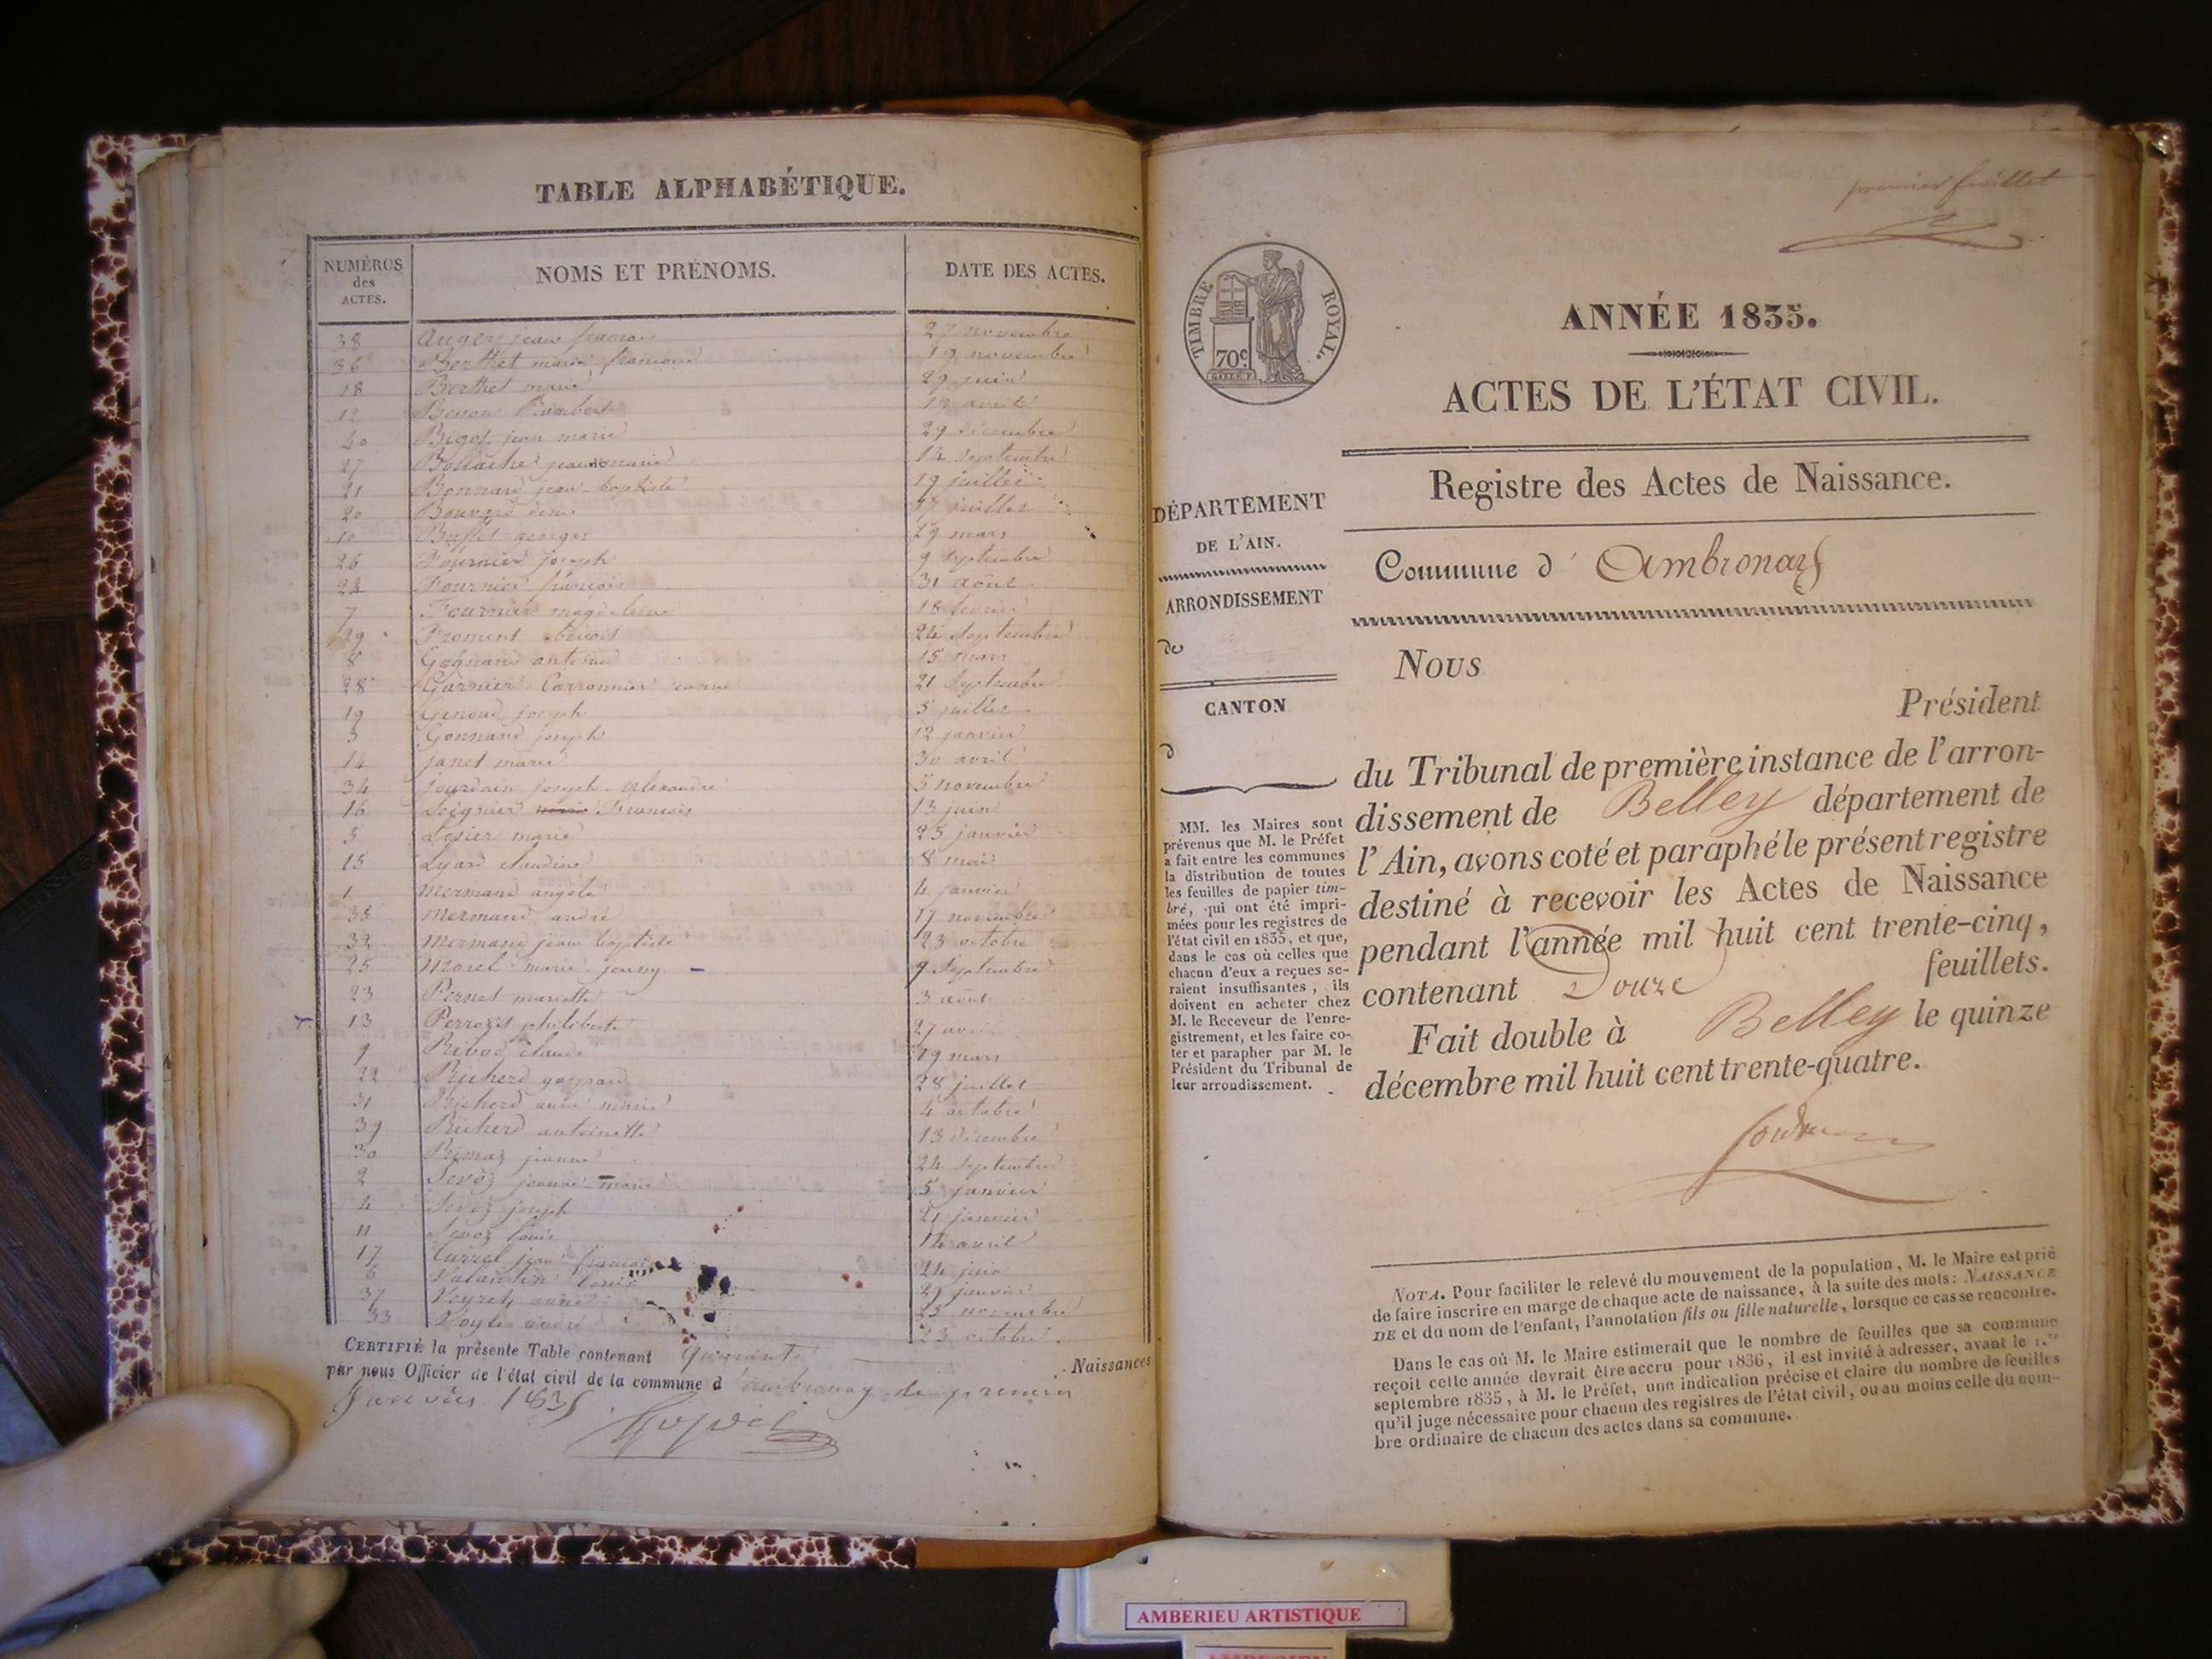 TABLE ALPHABÉTIQUE.
NUMÉROS des ACTES. NOMS ET PRÉNOMS. DATE DES ACTES.
38 auger jean françois 27 novembre
36 Berthet marie françoise 19 novembre
18 Berthet marie 29 juin
12 19 avril
40 Bigot jean marie 29 décembre
27 jean marie 14 septembre
21 Bonnard jean-baptiste 19 juillet
20 Bouvard denis juillet
10 Buffet georges 29 mars
26 Fournier joseph 9 septembre
24 Fournier françois 31 août
7 Fournier magdeleine 18 février
29 Froment benoit 24 septembre
8 antoine 15 mars
28 Garnier Carronnier jeanne 21 septembre
19 Genoud joseph 5 juillet
3 Gonnand joseph 12 janvier
14 janet marie 30 avril
34 jourdain joseph-alexandre 5 novembre
16 Leignier françois 13 juin
5 Losier marie 25 janvier
15 Lyard claudine 8 mai
1 mermand angèle 4 janvier
35 mermand andré 17 novembre
32 mermand jean baptiste 23 octobre
25 Morel marie jenny 9 septembre
23 Pernet mariette 3 août
13 philiberte 27 avril
9 Ribod claude 19 mars
22 Richerd gaspard 28 juillet
31 Richerd anne marie 4 octobre
39 Richerd antoinette 13 décembre
30 Rimaz jeanne 24 septembre
2 Sevoz jeanne-marie 5 janvier
4 Sevoz joseph 21 janvier
11 Sevoz louis 14 avril
17 Turrel jean françois 24 juin
6 Valantin louis 27 janvier
37 Veyret anne 25 novembre
33 andré 23 octobre
CERTIFIÉ la présente Table contenant quarante Naissances
par nous Officier de l'état civil de la commune d'ambronay le premier
Janvier 1835
premier feuillet
TIMBRE ROYAL.
70c
ANNÉE 1835.
ACTES DE L'ÉTAT CIVIL.
Registre des Actes de Naissance.
DÉPARTEMENT
DE L'AIN.
ARRONDISSEMENT
de
CANTON
d
MM. les Maires sont
prévenus que M. le Préfet
a fait entre les communes
la distribution de toutes
les feuilles de papier tim-
bré, qui ont été impri-
mées pour les registres de
l'état civil en 1835, et que,
dans le cas où celles que
chacun d'eux a reçues se-
raient insuffisantes, ils
doivent en acheter chez
M. le Receveur de l'enre-
gistrement, et les faire co-
ter et parapher par M. le
Président du Tribunal de
leur arrondissement.
Commune d' Ambronay
Nous
Président
du Tribunal de première instance de l'arron-
dissement de Belley département de
l'Ain, avons coté et paraphé le présent registre
destiné à recevoir les Actes de Naissance
pendant l'année mil huit cent trente-cinq,
contenant Douze feuillets.
Fait double à Belley le quinze
décembre mil huit cent trente-quatre.
NOTA. Pour faciliter le relevé du mouvement de la population, M. le Maire est prié
de faire inscrire en marge de chaque acte de naissance, à la suite des mots: NAISSANCE
DE et du nom de l'enfant, l'annotation fils ou fille naturelle, lorsque ce cas se rencontre.
Dans le cas où M. le Maire estimerait que le nombre de feuilles que sa commune
reçoit cette année devrait être accru pour 1836, il est invité à adresser, avant le 1.er
septembre 1835, à M. le Préfet, une indication précise et claire du nombre de feuilles
qu'il juge nécessaire pour chacun des registres de l'état civil, ou au moins celle du nom-
bre ordinaire de chacun des actes dans sa commune.
AMBERIEU ARTISTIQUE
AMBERIEU